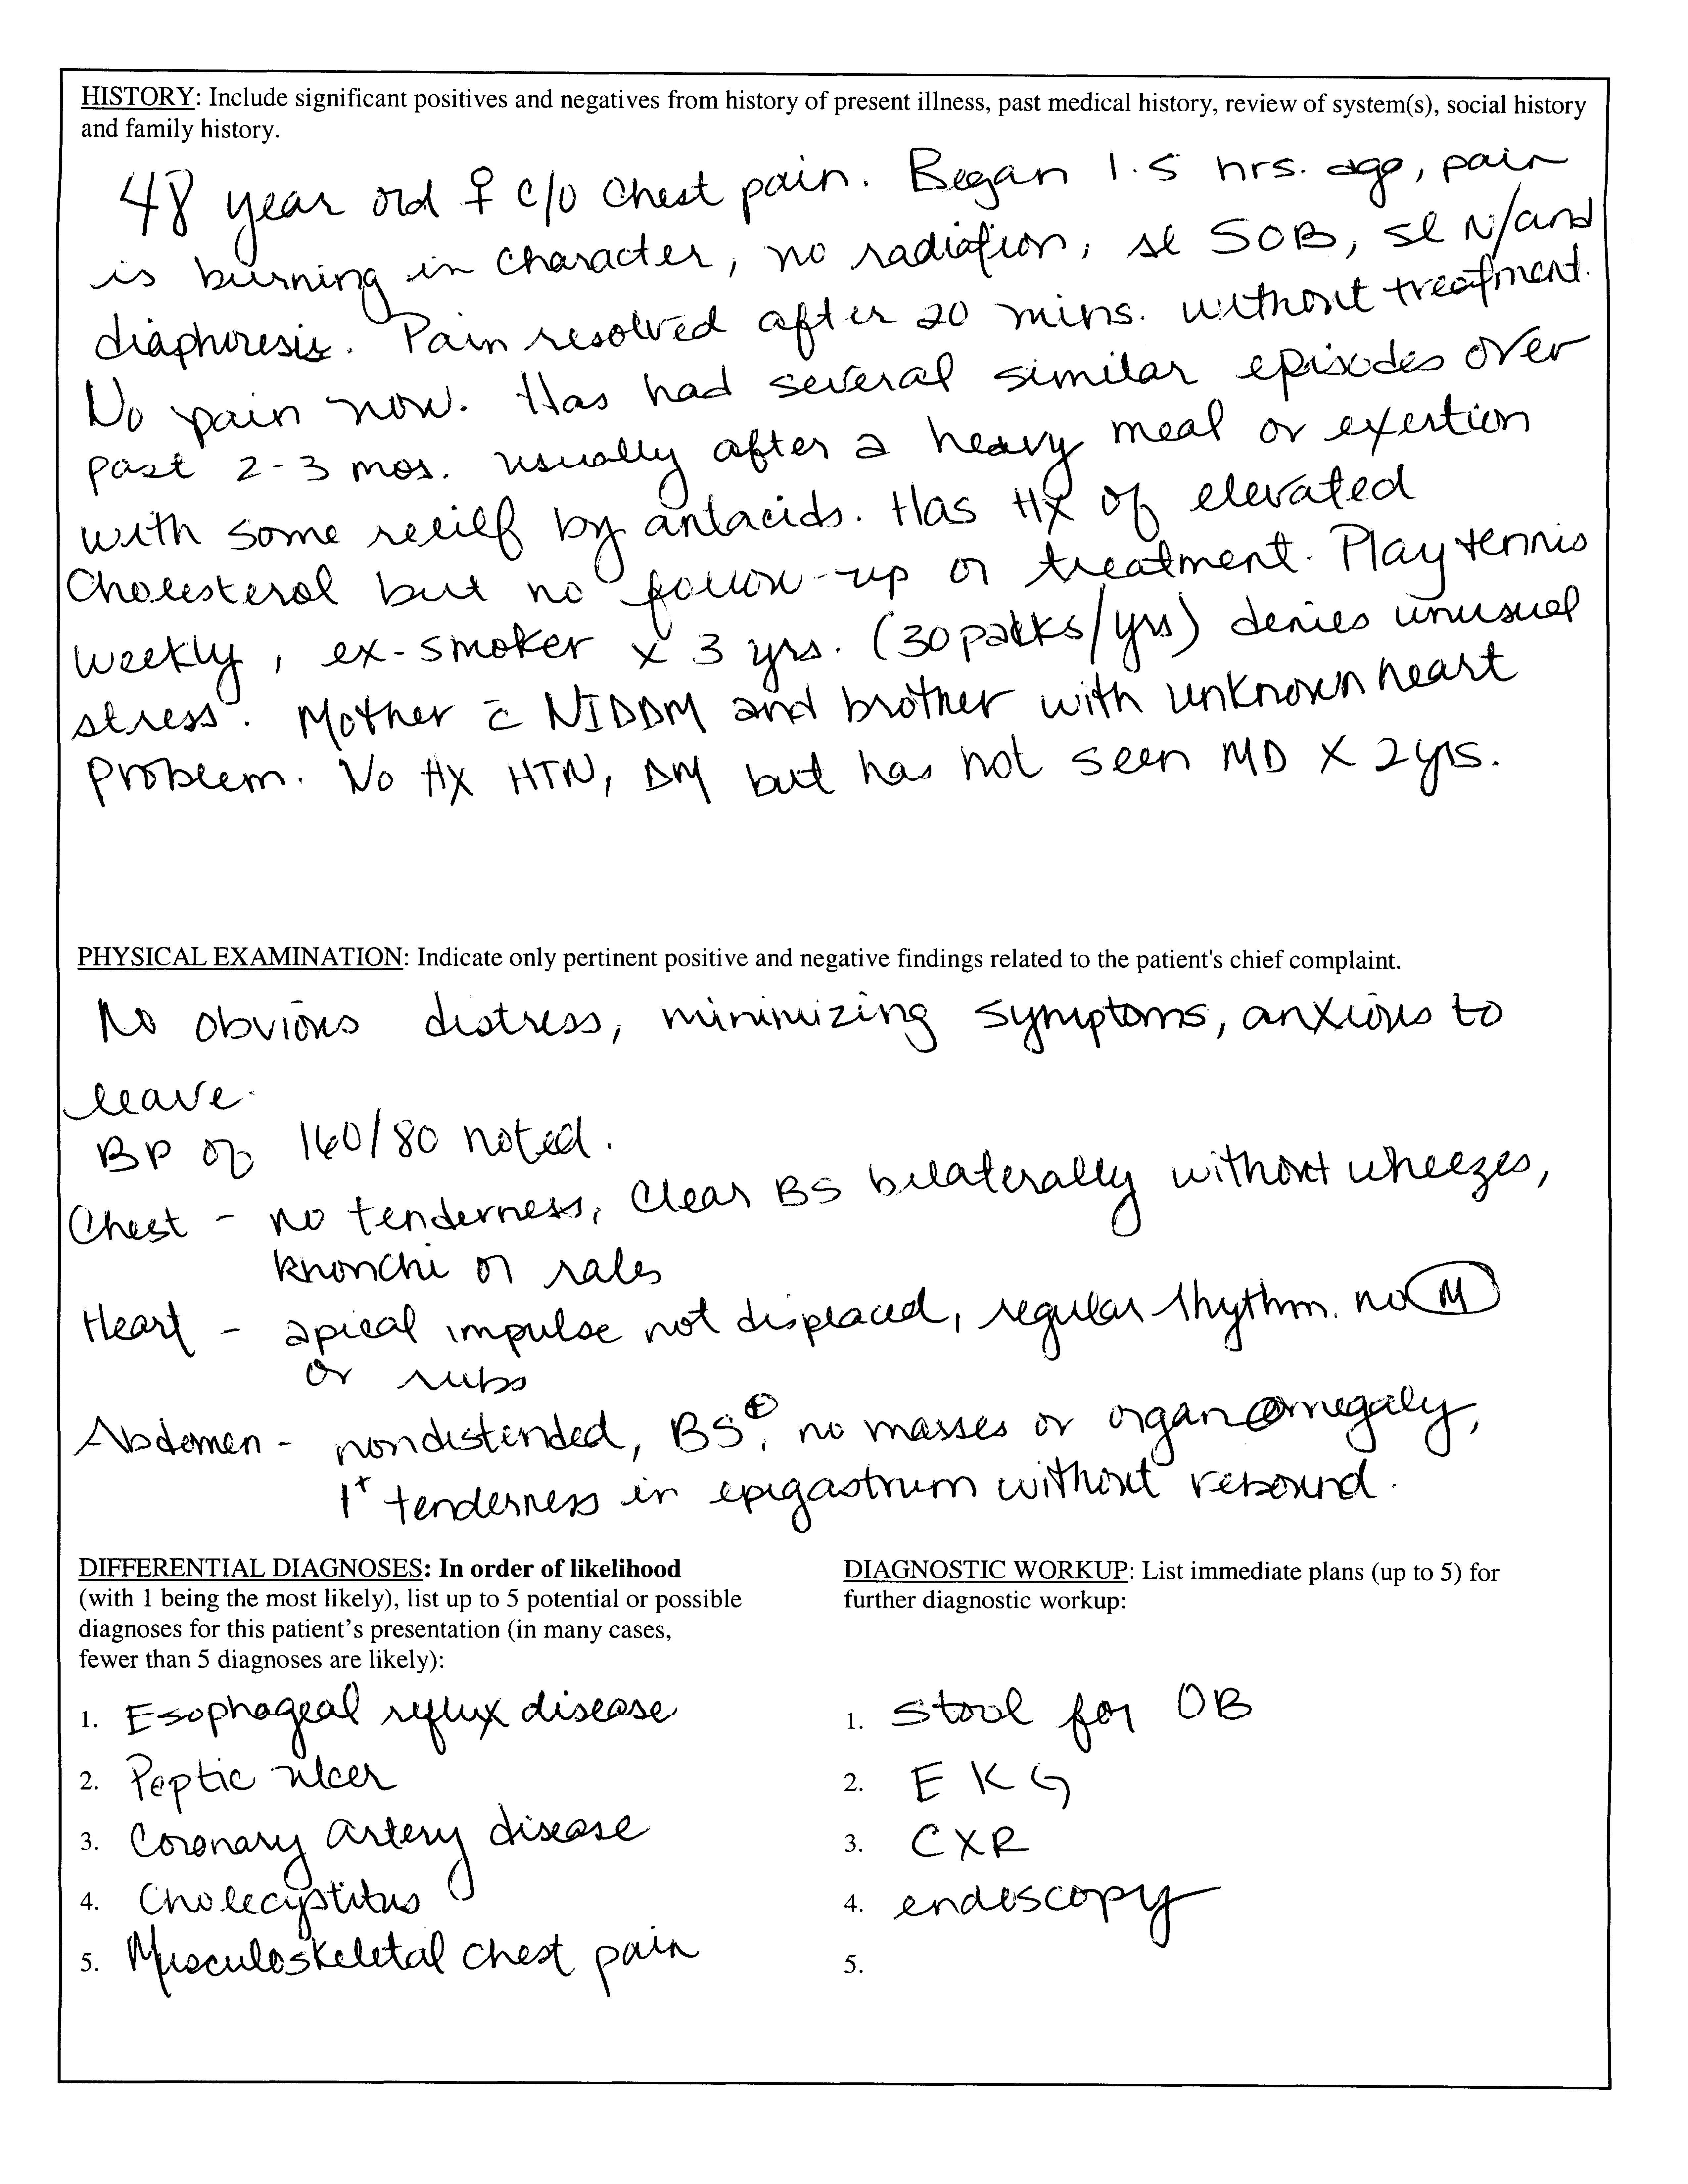 HISTORY: Include significant positives and negatives from history of present illness, past medical history, review of system(s), social history
and family history.
48 year old ♀ c/o chest pain. Began 1.5 hrs. ago, pain
is burning in character, no radiation, sl SOB, sl N/and
diaphoresis. Pain resolved after 20 mins. without treatment.
No pain now. Has had several similar episodes over
past 2-3 mos. usually after a heavy meal or exertion
with some relief by antacids. Has Hx of elevated
Cholesterol but no follow-up or treatment. Play tennis
weekly, ex-smoker x 3 yrs. (30 packs/yrs) denies unusual
stress. Mother c̄ NIDDM and brother with unknown heart
problem. No Hx HTN, DM but has not seen MD X 2 yrs.
PHYSICAL EXAMINATION: Indicate only pertinent positive and negative findings related to the patient's chief complaint.
No obvious distress, minimizing symptoms, anxious to
leave.
BP of 160/80 noted.
Chest - no tenderness, clear BS bilaterally without wheezes,
rhonchi or rales
Heart - apical impulse not displaced, regular rhythm. no M
or rubs
Abdomen - nondistended, BS⊕, no masses or organomegaly,
1+ tenderness in epigastrum without rebound.
DIFFERENTIAL DIAGNOSES: In order of likelihood
(with 1 being the most likely), list up to 5 potential or possible
diagnoses for this patient's presentation (in many cases,
fewer than 5 diagnoses are likely):
1. Esophageal reflux disease
2. Peptic ulcer
3. Coronary artery disease
4. Cholecystitus
5. Musculoskeletal chest pain
DIAGNOSTIC WORKUP: List immediate plans (up to 5) for
further diagnostic workup:
1. stool for OB
2. EKG
3. CXR
4. endoscopy
5.